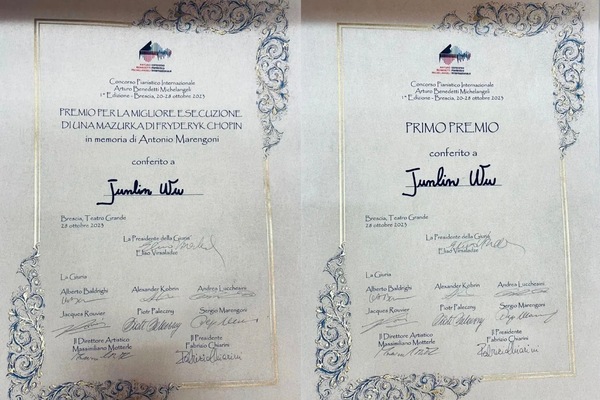 Concorso Pianistico Internazionale
Arturo Benedetti Michelangeli
1ª Edizione - Brescia, 20-28 ottobre 2023
PREMIO PER LA MIGLIORE ESECUZIONE
DI UNA MAZURKA DI FRYDERYK CHOPIN
in memoria di Antonio Marengoni
conferito a
Junlin Wu
Brescia, Teatro Grande
28 ottobre 2023
La Presidente della Giuria
Eliso Virsaladze
La Giuria
Alberto Baldrighi Alexander Kobrin Andrea Lucchesini
Jacques Rouvier Piotr Paleczny Sergio Marengoni
Il Direttore Artistico Il Presidente
Massimiliano Motterle Fabrizio Chiarini
Concorso Pianistico Internazionale
Arturo Benedetti Michelangeli
1ª Edizione - Brescia, 20-28 ottobre 2023
PRIMO PREMIO
conferito a
Junlin Wu
Brescia, Teatro Grande
28 ottobre 2023
La Presidente della Giuria
Eliso Virsaladze
La Giuria
Alberto Baldrighi Alexander Kobrin Andrea Lucchesini
Jacques Rouvier Piotr Paleczny Sergio Marengoni
Il Direttore Artistico Il Presidente
Massimiliano Motterle Fabrizio Chiarini